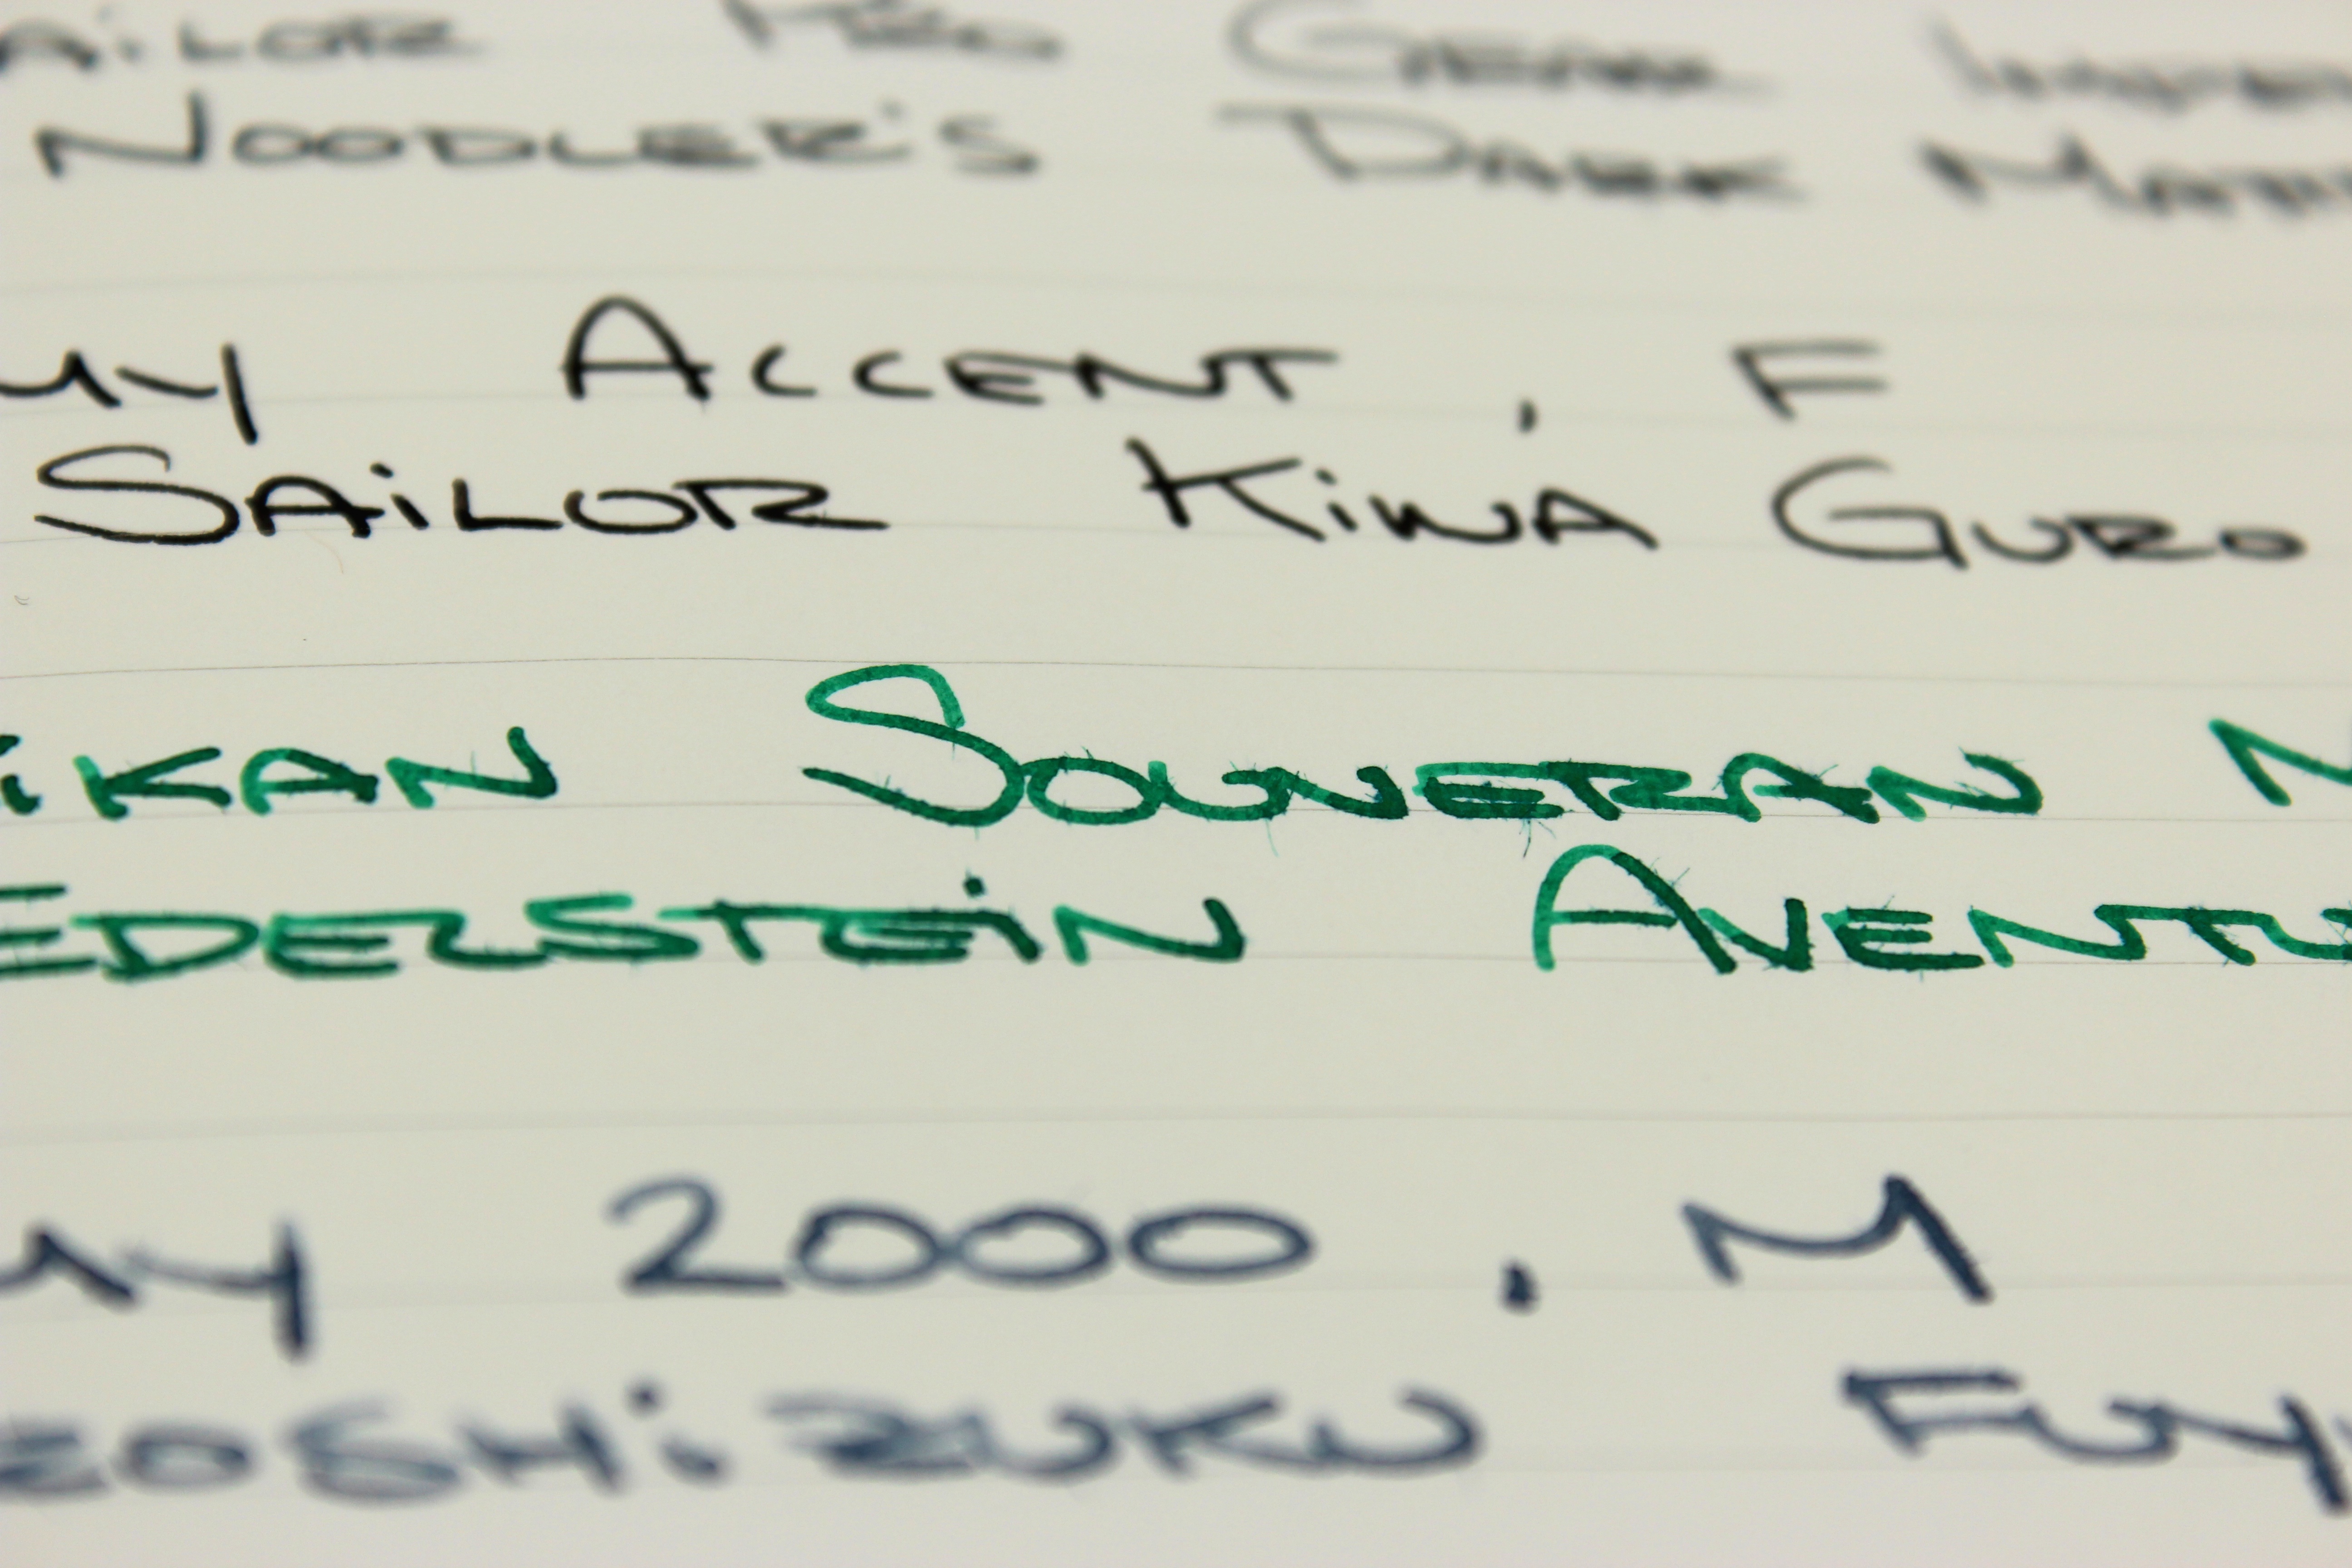 AiLOR PRO GEAR
NOODLER'S DARK
MY ACCENT, F
SAiLOR KiWA GURO
iKAN SOUVERAN M
EDELSTEiN AVENTU
MY 2000, M
ROSHiZUKU FUY